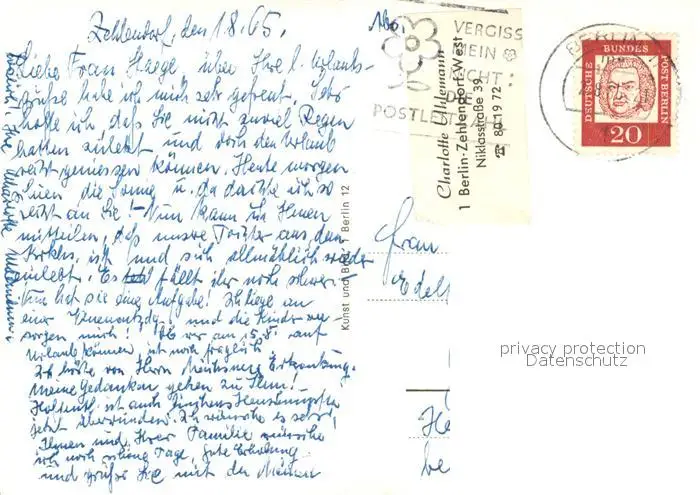 Zehlendorf, den 1.8.65.
Liebe Frau Haege, über Ihre l. Urlaubs-
grüße habe ich mich sehr gefreut. Ich
hoffe ich, daß Sie nicht zuviel Regen
hatten zuletzt und doch den Urlaub
recht geniessen können. Heute morgen
schien die Sonne u. da dachte ich so
recht an Sie! Nun kann ich Ihnen
mitteilen, daß unsre Tochter aus dem
Krkhs. ist und sich allmählich wieder
einlebt. Es fällt ihr noch schwer.
Nun hat sie eine Aufgabe! Ich liege an
einer und die Kinder ver
sorgen mich! Ob wir am 15.8. auf
Urlaub können, ist noch fraglich
Ich hörte von Herrn Erkrankung.
meine Gedanken gehen zu Ihm!
ist auch
jetzt überwunden. Ich wünsche es sehr,
Ihnen und Ihrer Familie wünsche
ich noch schöne Tage, gute Erholung
und grüße Sie mit den Meinen
Ihre Charlotte Uhldemann
Kunst und Berlin 12
Abs.
VERGISS
MEIN
NICHT
POSTLEIT
Charlotte Uhldemann
1 Berlin-Zehlendorf-West
Niklasstraße 39
☎ 80 19 72
BERLIN
DEUTSCHE BUNDESPOST BERLIN
20
Frau
Edel
He
be
privacy protection
Datenschutz